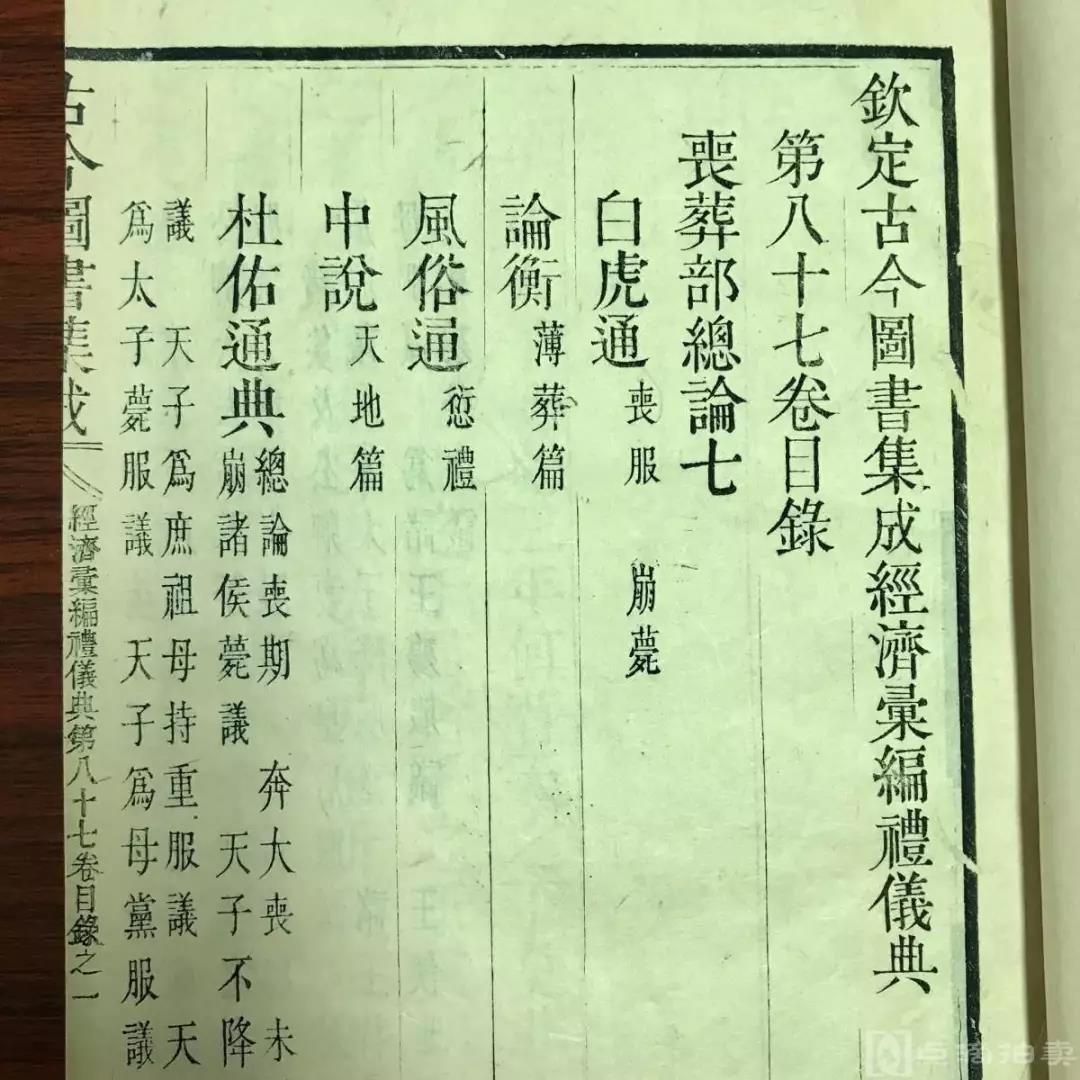 欽定古今圖書集成經濟彙編禮儀典
第八十七卷目錄
喪葬部總論七
白虎通 喪服 崩薨
論衡 薄葬篇
風俗通 愆禮
中說 天地篇
杜佑通典 總論喪期 奔大喪 未
崩諸侯薨議 天子不降
議 天子為庶祖母持重服議 天
為太子薨服議 天子為母黨服議
古今圖書集成 經濟彙編禮儀典第八十七卷目錄之一
点滴拍卖